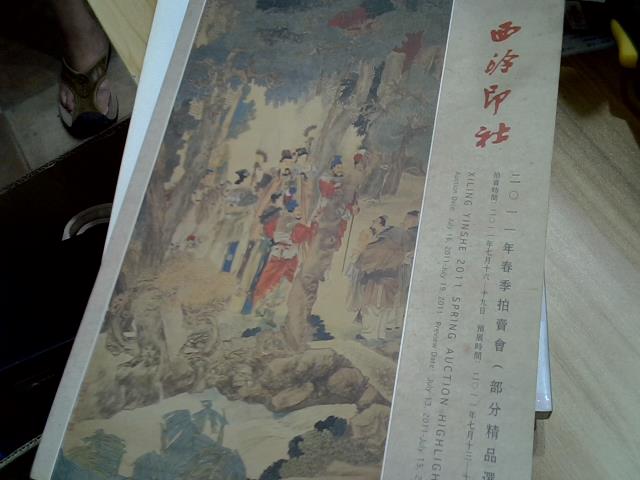 西泠印社
二〇一一年春季拍賣會（部分精品選
拍賣時間：二〇一一年七月十六—十九日 預展時間：二〇一一年七月十三—十
XILING YINSHE 2011 SPRING AUCTION HIGHLIGH
Auction Date: July 16, 2011-July 19, 2011 Preview Date: July 13, 2011-July 15, 2